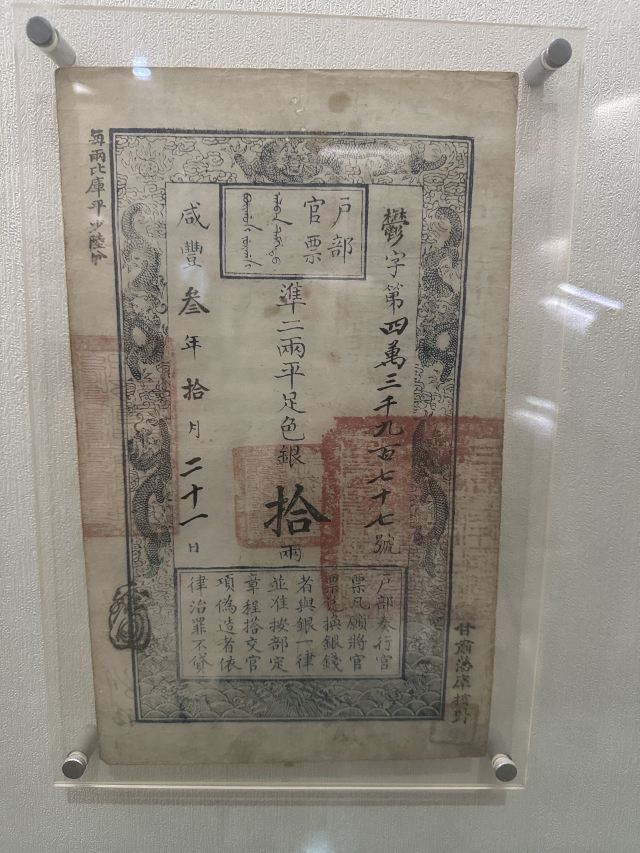 户部
官票
鬱字第四萬三千九百七十七號
準二兩平足色銀拾兩
咸豐叁年拾月二十一日
每兩比庫平少陸分
户部奏行官
票凡願將官
票兌換銀錢
者與銀一律
並准按部定
章程搭交官
項偽造者依
律治罪不貸
甘肅藩庫核對